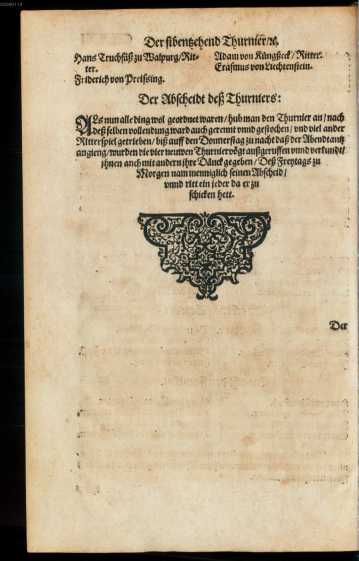 Der sibentzehend Thurnier/ꝛc.
Hans Truchsäß zu Walpurg/Rit-
ter.
Friderich von Preissing.
Adam von Küngßeck/Ritter.
Erasmus von Liechtenstein.
Der Abscheidt deß Thurniers:
ALs nun alle ding wol geordnet waren/hub man den Thurnier an/nach
deß selben vollendung ward auch gerennt vnnd gestochen/vnd viel ander
Ritterspiel getrieben/biß auff den Donnerstag zu nacht daß der Abendtantz
angieng/wurden die vier neuwen Thurniervögt außgeruffen vnnd verkundt/
jhnen auch mit andern jhre Dänck gegeben/Deß Freytags zu
Morgen nam menniglich seinen Abscheid/
vnnd ritt ein jeder da er zu
schicken hett.
Der